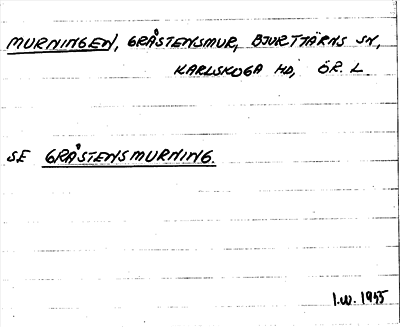 MURNINGEN, GRÅSTENSMUR, BJURTJÄRNS SN,
KARLSKOGA HD, ÖR. L
SE GRÅSTENSMURNING.
I.W. 1955